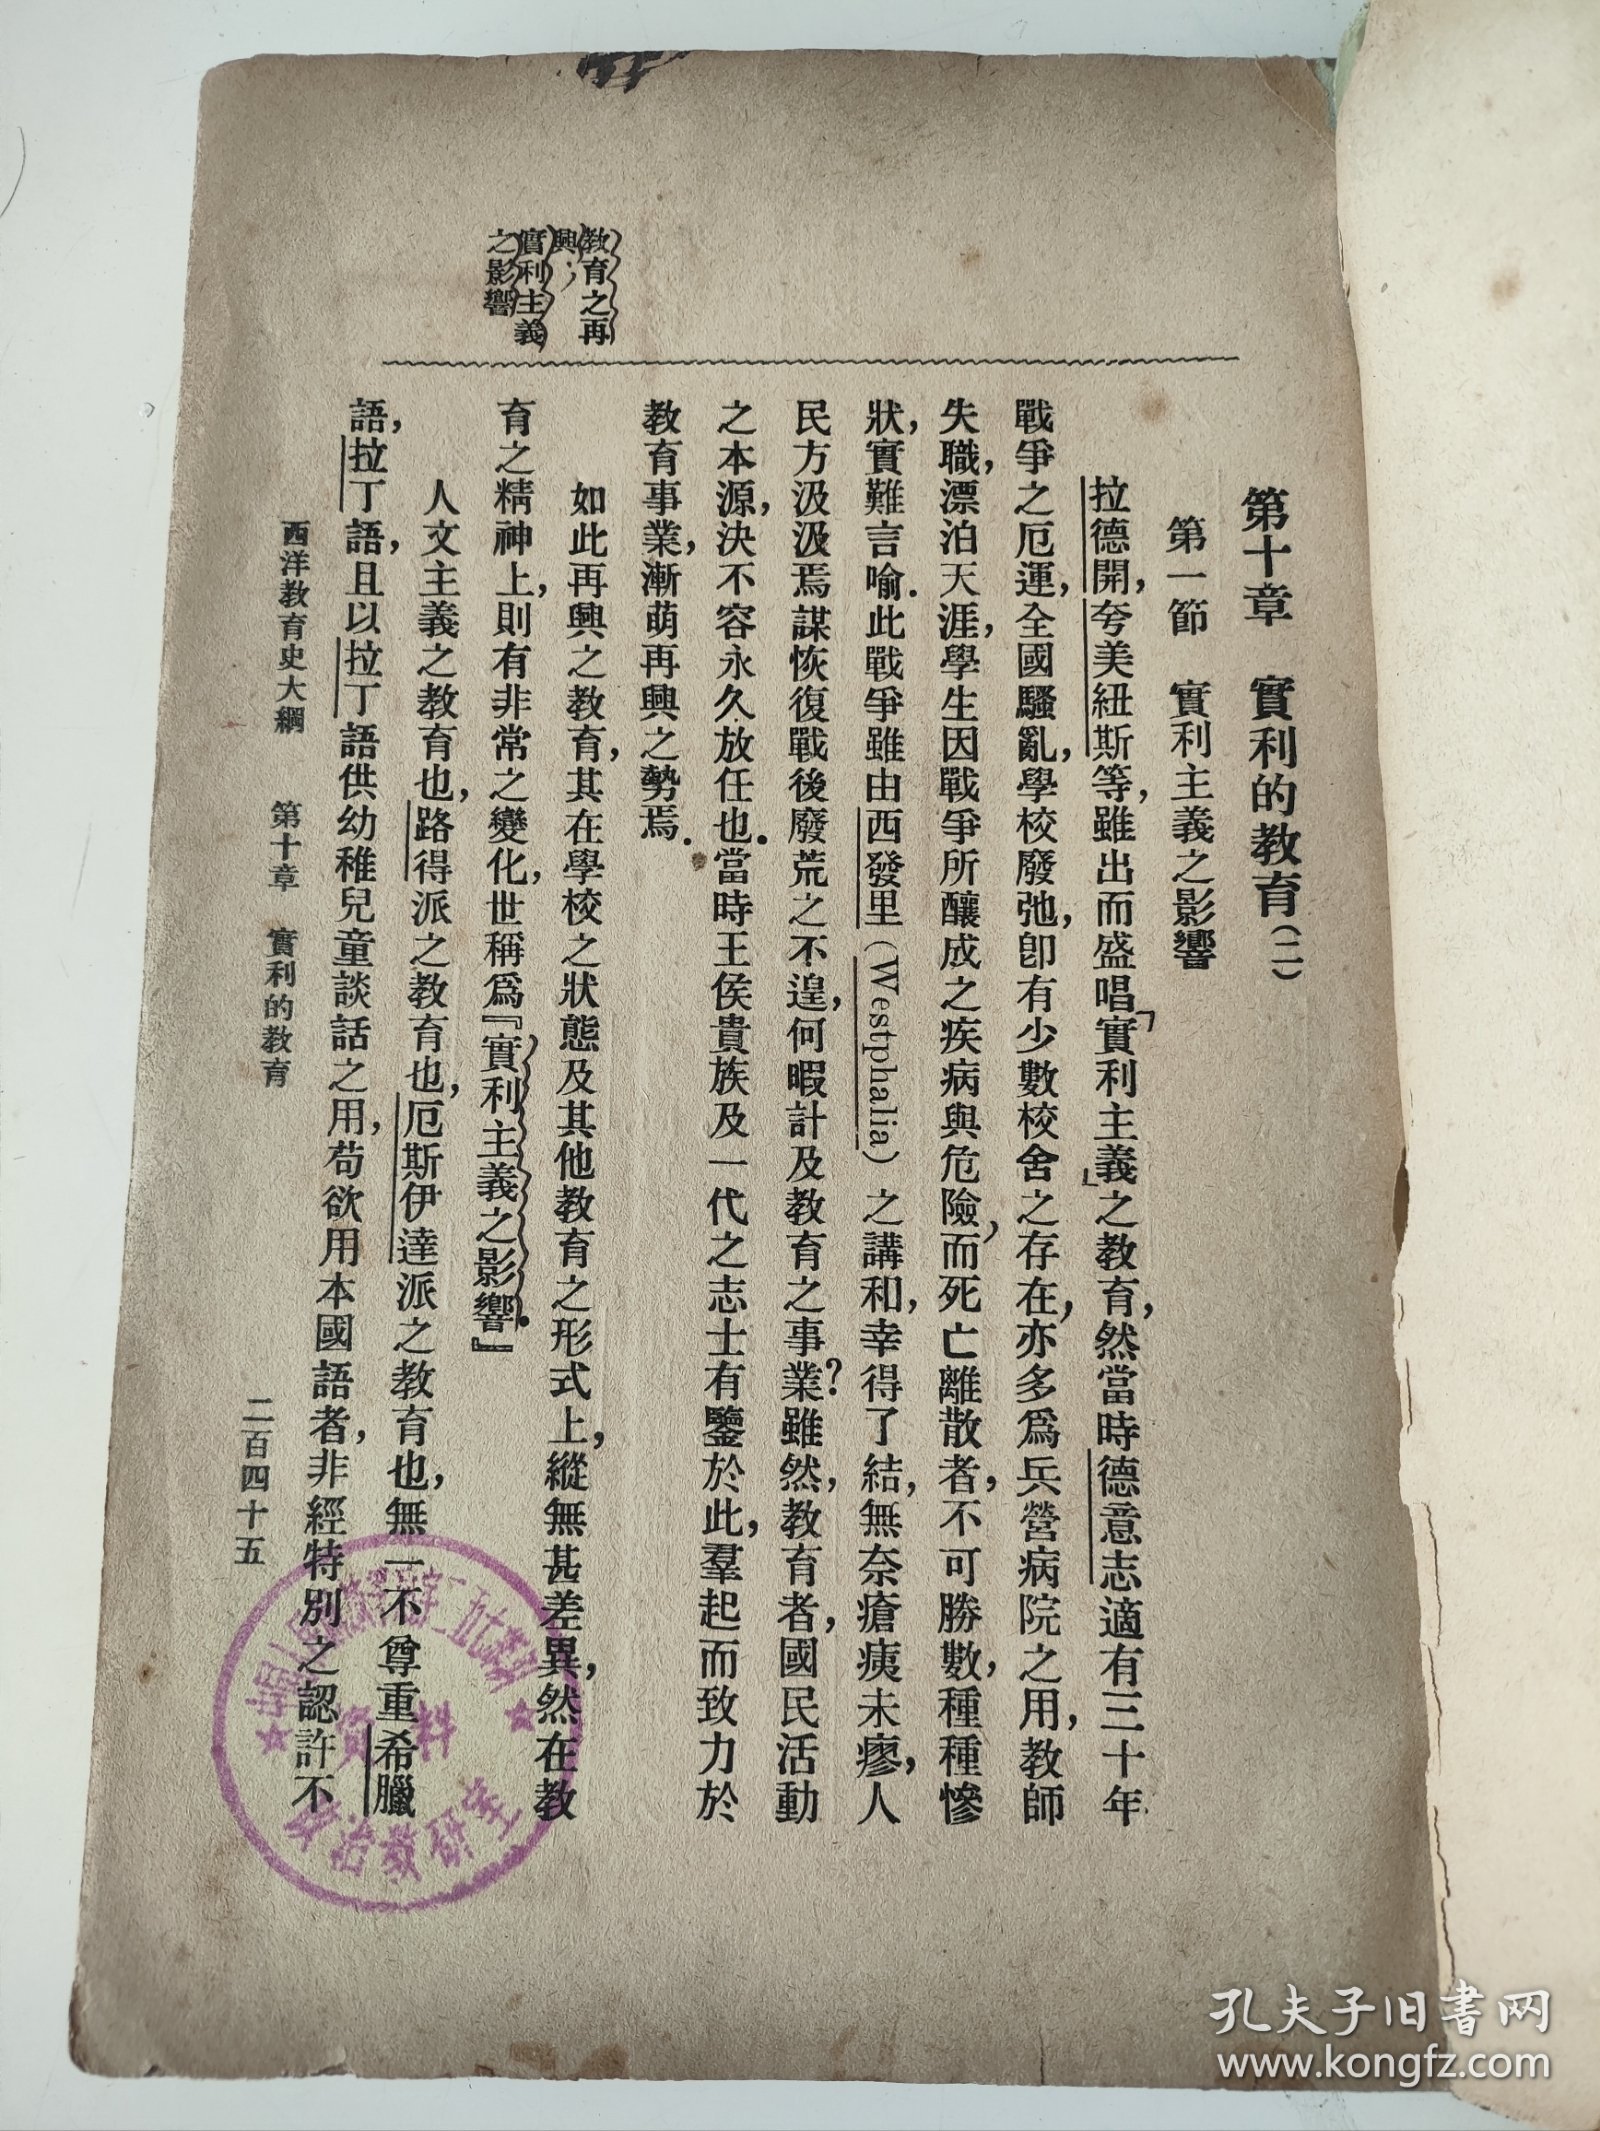 第十章　實利的教育(二)
第一節　實利主義之影響
拉德開,夸美紐斯等,雖出而盛唱「實利主義」之教育,然當時德意志適有三十年
戰爭之厄運,全國騷亂,學校廢弛,卽有少數校舍之存在,亦多爲兵營病院之用,教師
失職,漂泊天涯,學生因戰爭所釀成之疾病與危險,而死亡離散者,不可勝數,種種慘
狀,實難言喻.此戰爭雖由西發里(Westphalia)之講和,幸得了結,無奈瘡痍未瘳,人
民方汲汲焉謀恢復戰後廢荒之不遑,何暇計及教育之事業?雖然,教育者,國民活動
之本源,決不容永久放任也.當時王侯貴族及一代之志士有鑒於此,羣起而致力於
教育事業,漸萌再興之勢焉.
如此再興之教育,其在學校之狀態及其他教育之形式上,縱無甚差異,然在教
育之精神上,則有非常之變化,世稱爲『實利主義之影響.』
人文主義之教育也,路得派之教育也,厄斯伊達派之教育也,無一不尊重希臘
語,拉丁語,且以拉丁語供幼稚兒童談話之用,苟欲用本國語者,非經特別之認許不
教育之再
興;
實利主義
之影響
西洋教育史大綱　第十章　實利的教育　二百四十五
資料
政治教研室
孔夫子旧书网
www.kongfz.com